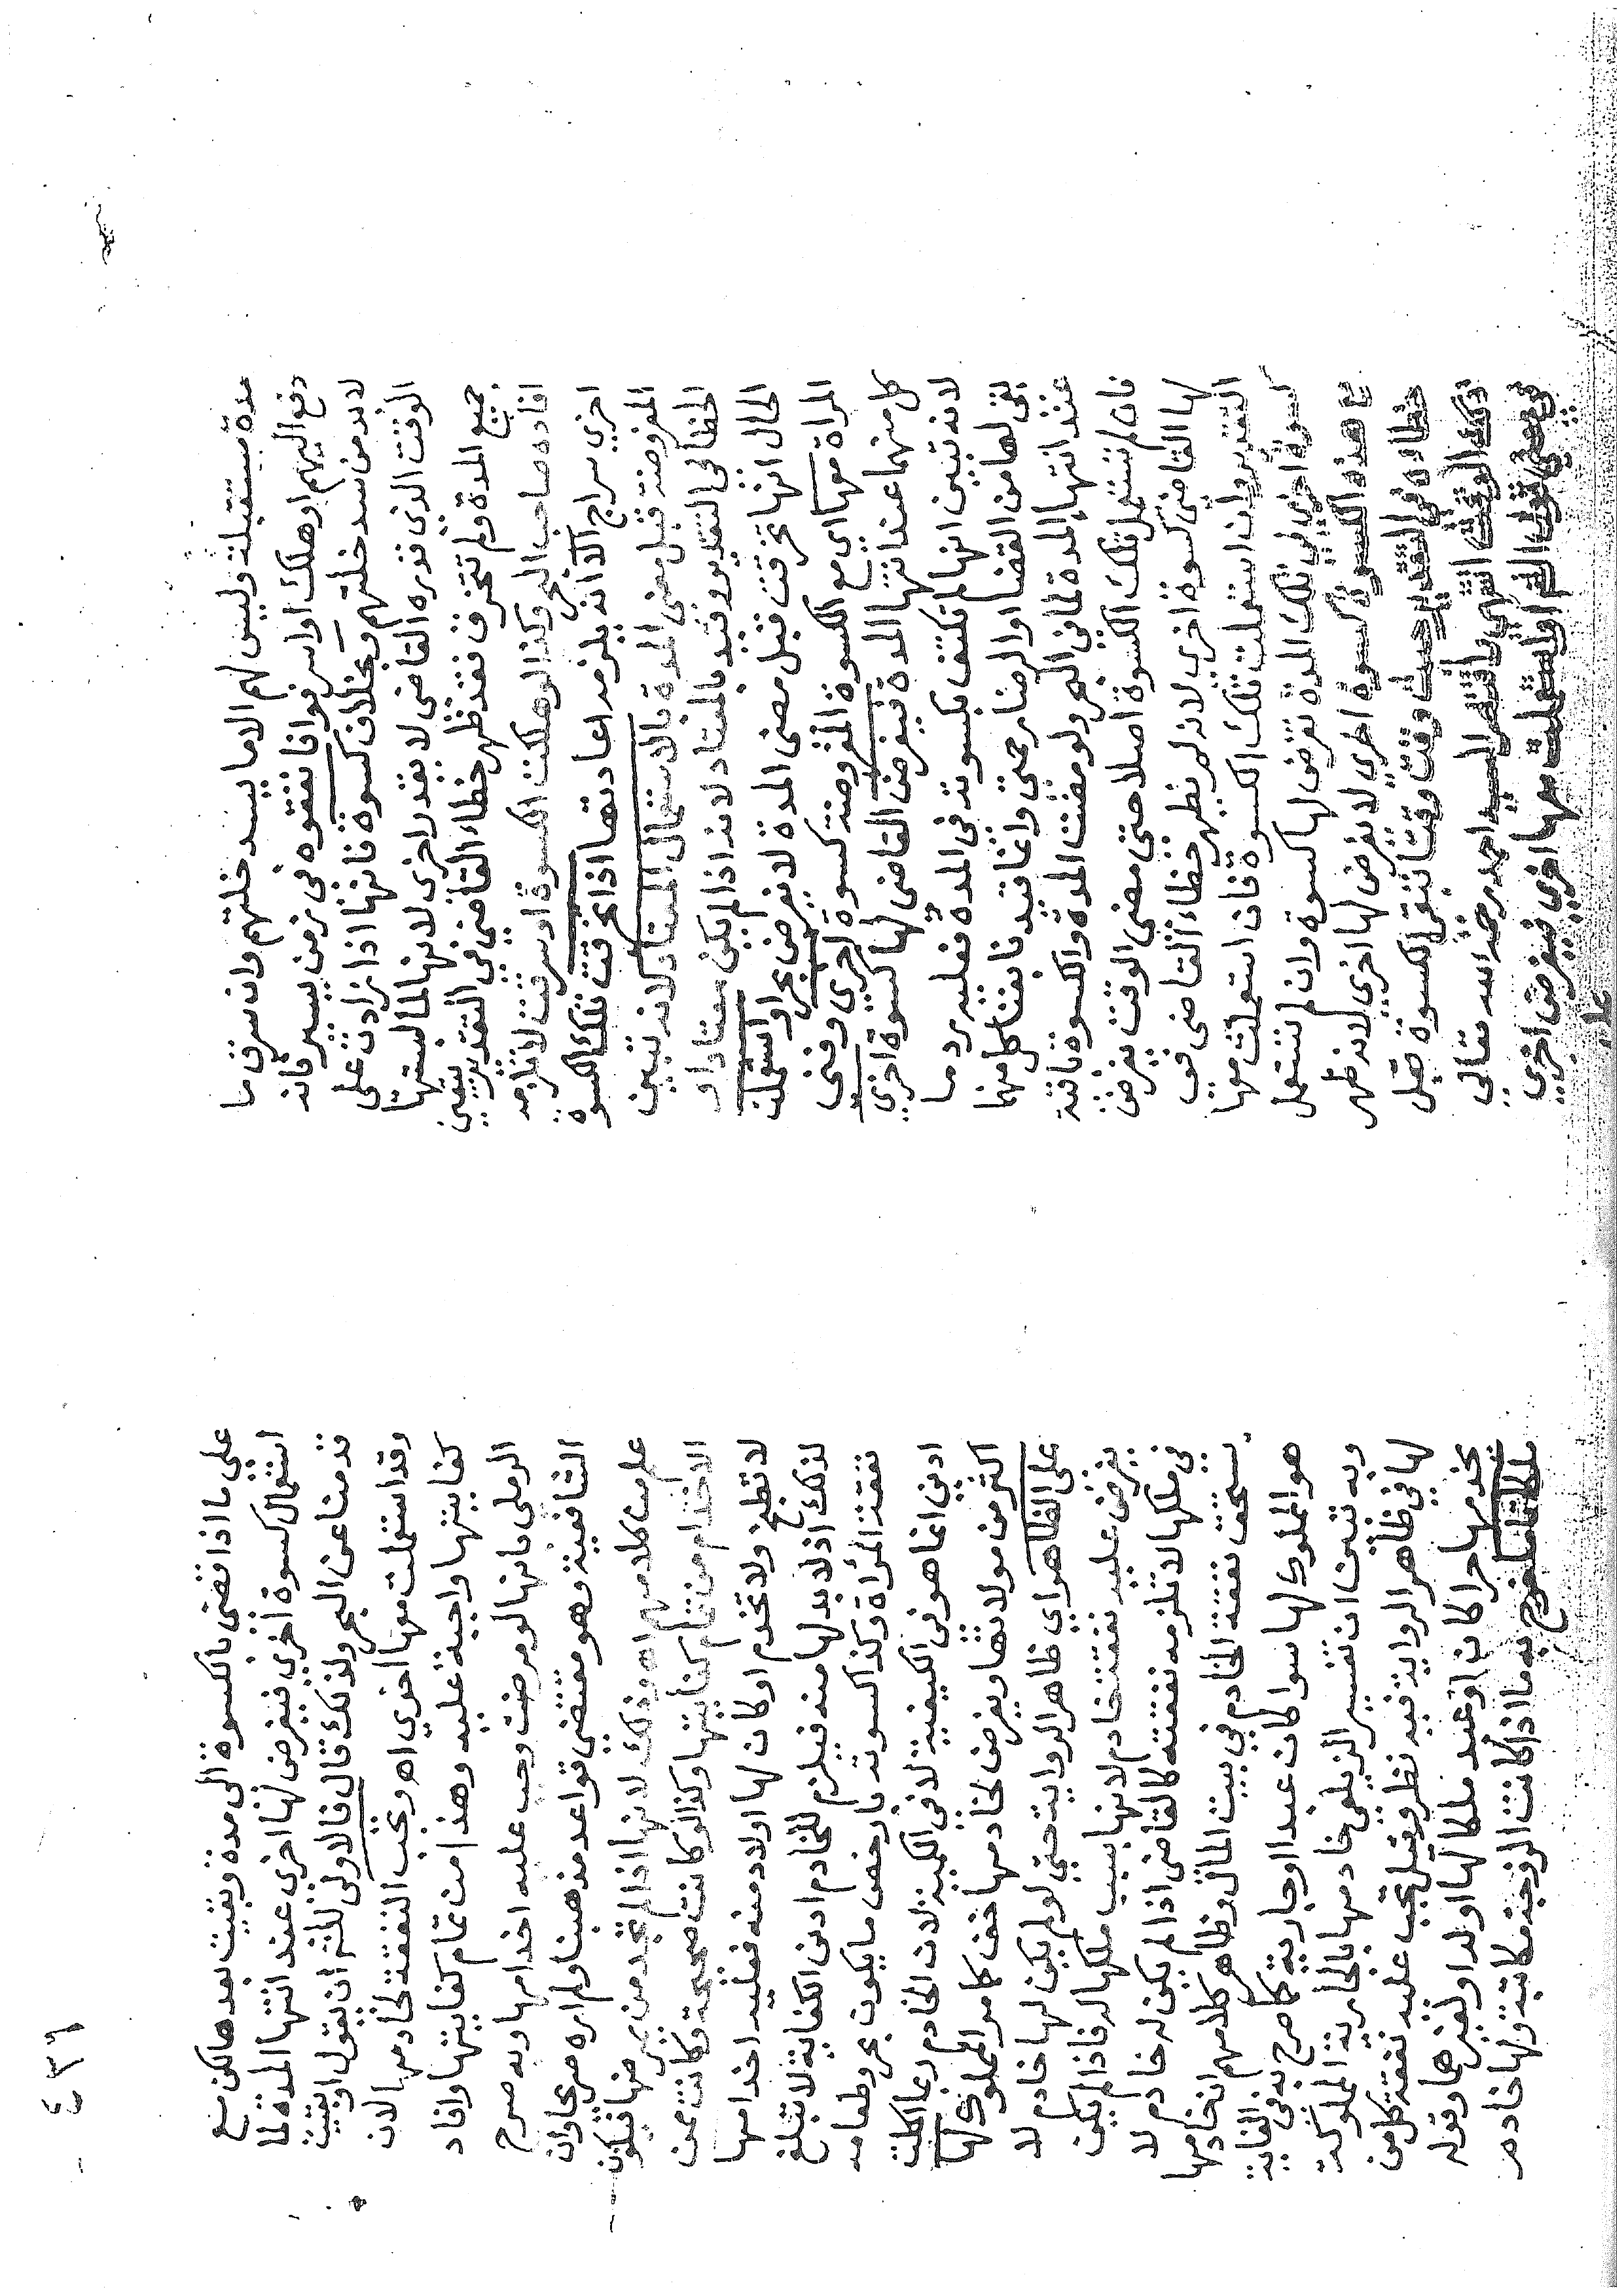 ٤٣٦
مدة مستقبلة وليس لهم الا ما يسد خلتهم وان سرق ما
دفع اليهم او هلك او اسرفوا فانفقوه في زمن يسير فانه
لابد من سد خلتهم وبخلاف كسوة فانها اذا زادت على
الوقت الذى قدره القاضى لا يقدر اخرى لانها لما لبستها
جميع المدة ولم تتخرق فقد ظهر خطاء القاضي في التقدير بتعيين
افاده صاحب البحر وكذا لو هلكت الكسوة او سرقت لا تلزمه
اخري سراج الا انه يلزمه اعادتها اذا تخرقت تلك الكسوة
المفروضة قبل مضى المدة بالاستعمال المعتاد لانه تبين
الخطا فى التقدير وقيد بالمعتاد لانه اذا لم يكن معتادا و
الحال انها تخرقت قبل مضى المدة لا يفرض بحر او استعملت
المراة معها اى مع الكسوة المفروضة كسوة اخري وفنى
كل منهما عند انتها المدة فيفرض القاضى لها كسوة اخري
لانه تبين انها لم تكتف بكسوته فى المدة فعليه رد ما
بقى لها من القضا او الرضا رحمتى وانما قيد بافنا كل منهما
عند انتهاء المدة لما في البحر ولو مضت المدة والكسوة باقية
فان لم تستعمل تلك الكسوة اصلا حتى مضى الوقت يفرض
لها القاضي كسوة اخري لانه لم يظهر خطاء القاضى في
التقدير وان استعملت تلك الكسوة فان استعملت معها
كسوة اخري الي تلك المدة تفرض لها كسوة وان لم تستعمل
مع هذه الكسوة كسوة اخري لا يفرض لها اخري لانه ظهر
خطاؤه في التقدير حيث وقت وقتا تبقى الكسوة
ذلك الوقت انتهى واقتصر السيد احمد رحمه الله تعالي
في معنى قول او استعملت معها اخري فيفرض اخري
على
على ما اذا قضى بالكسوة الى مدة وبقيت بعدها لكن مع
استعمال كسوة اخري فيفرض لها اخرى عند انتها المدة لما
قدمنا عن البحر ولذلك قال فالاولى للش ان يقول او بقيت
وقد استعملت معها اخري اه وتجب النفقة لخادمها لان
كفايتها واجبة عليه وهذا من تمام كفايتها وافاد
الرملى بانها لو مرضت وجب عليه اخدامها وبه صرح
الشافعية وهو مقتضى قواعد مذهبنا ولم اره صريحا وان
علم من كلامهم اه وذلك لانها اذا لم تجد من يمرضها فيكون
الاخدام من تمام كفايتها وكذا لو كانت صحيحة وكانت ممن
لا تطبخ ولا تخدم او كان لها اولاد منه فعليه اخدامها
لذلك اذ لا بد لها منه فيلزم للخادم ادنى الكفاية لا تبلغ
نفقة المرأة وكذا كسوته بارخص ما يكون بحر وطعامه
ادنى انما هو في الكيفية لا في الكمية لان الخادم ربما اكلت
اكثر من مولاتها ويفرض لخادمها خف كما مر المملوك لها
على الظاهر اي ظاهر الرواية حتى لو لم يكن لها خادم لا
يفرض عليه نفقة خادم لانها بسبب ملكها له فاذا لم يكن
في ملكها لا تلزمه نفقته كالقاضى اذا لم يكن له خادم لا
يستحق نفقة الخادم في بيت المال وظاهر كلامهم ان خادمها
هو المملوك لها سوا كان عبدا او جارية كما صرح به في الغاية
وبه تبين ان تفسير الزيلعي خادمها بالجارية المملوكة
لها في ظاهر الرواية فيه نظر وقيل تجب عليه نفقة كل من
يخدمها حرا كان او عبد ملكا لها او له او لغيرهما وقوله
ملكا به ما اذا كانت الزوجة مكاتبة ولها خادم